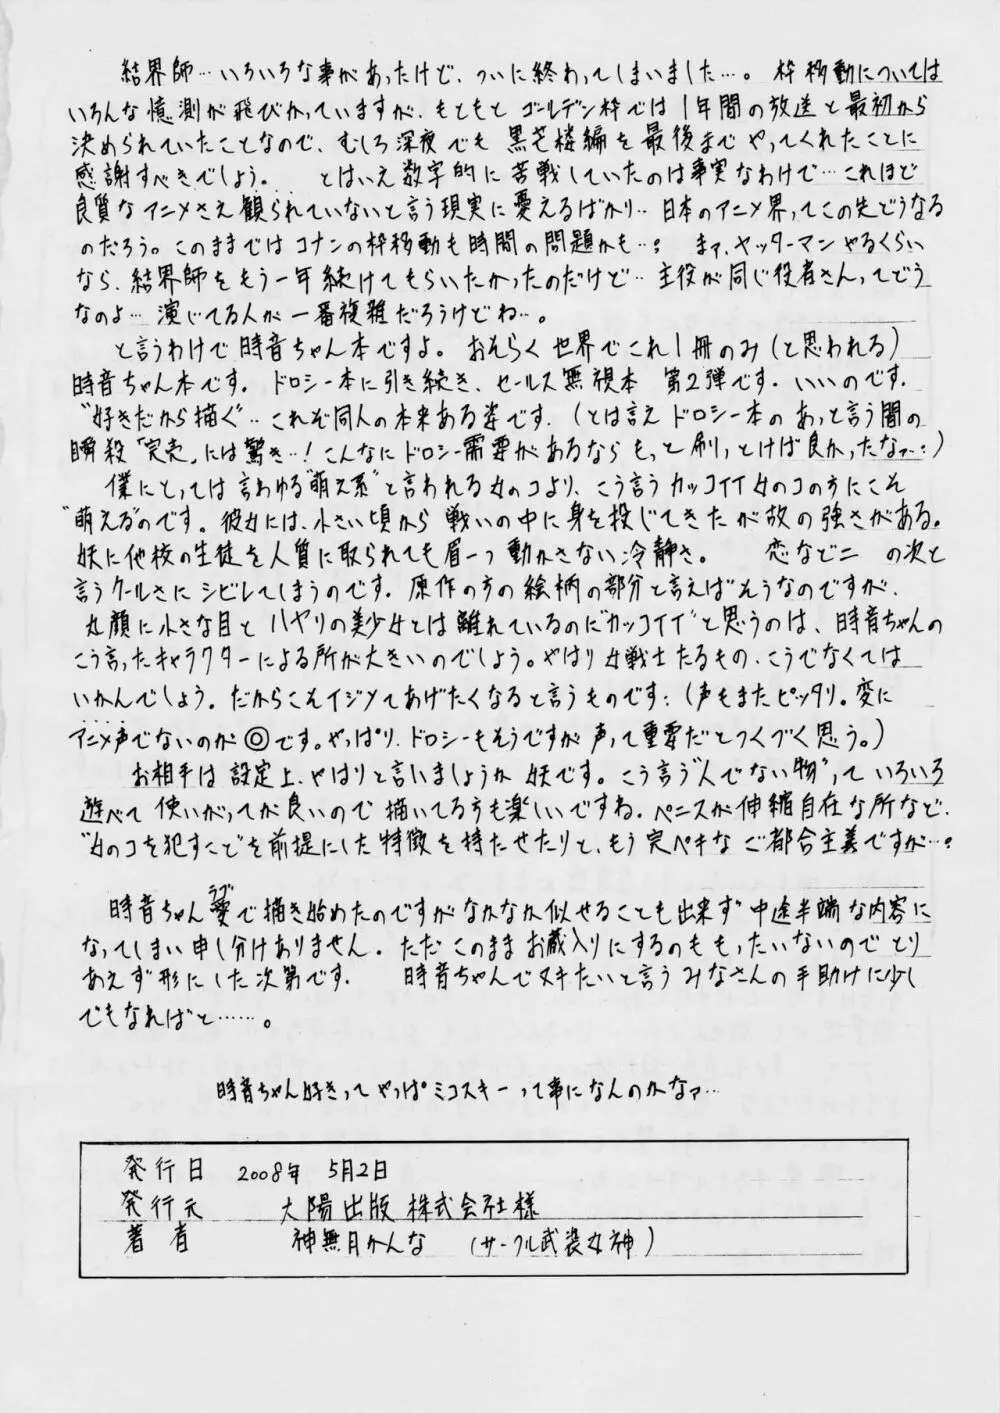 結界師…いろいろな事があったけど、ついに終わってしまいました…。枠移動については
いろんな憶測が飛びかっていますが、もともとゴールデン枠では1年間の放送と最初から
決められていたことなので、むしろ深夜でも黒芒楼編を最後までやってくれたことに
感謝すべきでしょう。 とはいえ数字的に苦戦していたのは事実なわけで…これほど
良質なアニメさえ観られていないと言う現実に憂えるばかり…日本のアニメ界ってこの先どうなる
のだろう。このままではコナンの枠移動も時間の問題かも…? まァ、ヤッターマンやるくらい
なら、結界師をもう一年続けてもらいたかったのだけど…主役が同じ役者さんってどう
なのよ…演じてる人が一番複雑だろうけどね…。
と言うわけで時音ちゃん本ですよ。おそらく世界でこれ1冊のみ(と思われる)
時音ちゃん本です。ドロシー本に引き続き、セールス無視本 第2弾です。いいのです。
"好きだから描く"…これぞ同人の本来ある姿です。(とは言えドロシー本のあっと言う間の
瞬殺「完売」には驚き…!こんなにドロシー需要があるならもっと刷っとけば良かったなァ…:)
僕にとっては言わゆる"萌え系"と言われる女のコより、こう言うカッコイイ女のコの方にこそ
"萌える"のです。彼女には、小さい頃から戦いの中に身を投じてきたが故の強さがある。
妖に他校の生徒を人質に取られても眉一つ動かさない冷静さ。 恋など二 の次と
言うクールさにシビレてしまうのです。原作の方の絵柄の部分と言えばそうなのですが、
丸顔に小さな目とハヤリの美少女とは離れているのに"カッコイイ"と思うのは、時音ちゃんの
こう言ったキャラクターによる所が大きいのでしょう。やはり女戦士たるもの、こうでなくては
いかんでしょう。だからこそイジメてあげたくなると言うものです:(声もまたピッタリ。変に
アニメ声でないのが◎です。やっぱり、ドロシーもそうですが声って重要だとつくづく思う。)
お相手は設定上、やはりと言いましょうか妖です。こう言う"人でない物"っていろいろ
遊べて使いがってが良いので描いてる方も楽しいですね。ペニスが伸縮自在な所など、
"女のコを犯すこと"を前提にした特徴を持たせたりと、もう完ペキなご都合主義ですが…?
時音ちゃん愛(ラブ)で描き始めたのですがなかなか似せることも出来ず中途半端な内容に
なってしまい申し分けありません。ただこのままお蔵入りにするのももったいないのでとり
あえず形にした次第です。 時音ちゃんでヌキたいと言うみなさんの手助けに少し
でもなればと……。
時音ちゃん好きってやっぱミコスキーって事になんのかなァ…
発行日 2008年 5月2日
発行元 大陽出版株式会社様
著者 神無月かんな (サークル武装女神)